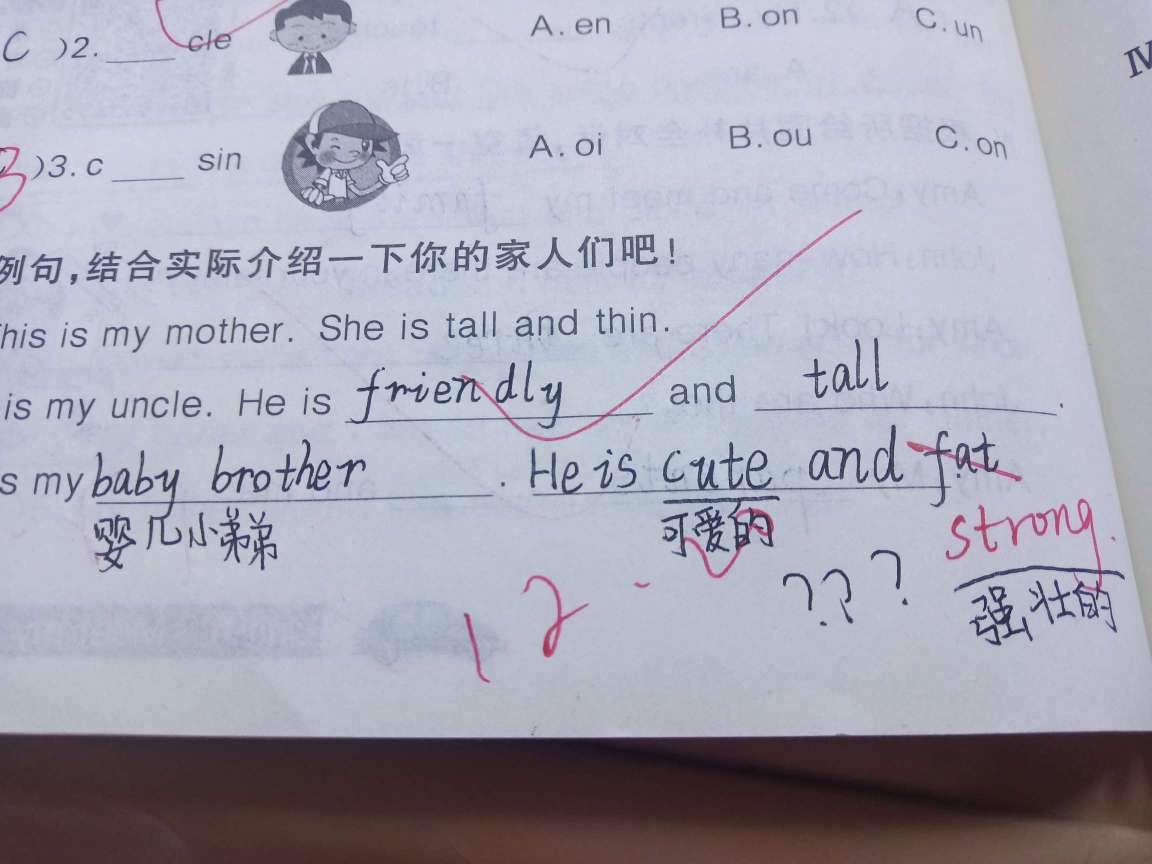 C )2. ____ cle A. en B. on C. un
IV
3 )3. c ____ sin A. oi B. ou C. on
例句,结合实际介绍一下你的家人们吧!
his is my mother. She is tall and thin.
is my uncle. He is friendly and tall.
s my baby brother. He is cute and fat
婴儿小弟弟 可爱的 strong.
12 ? ? ? 强壮的